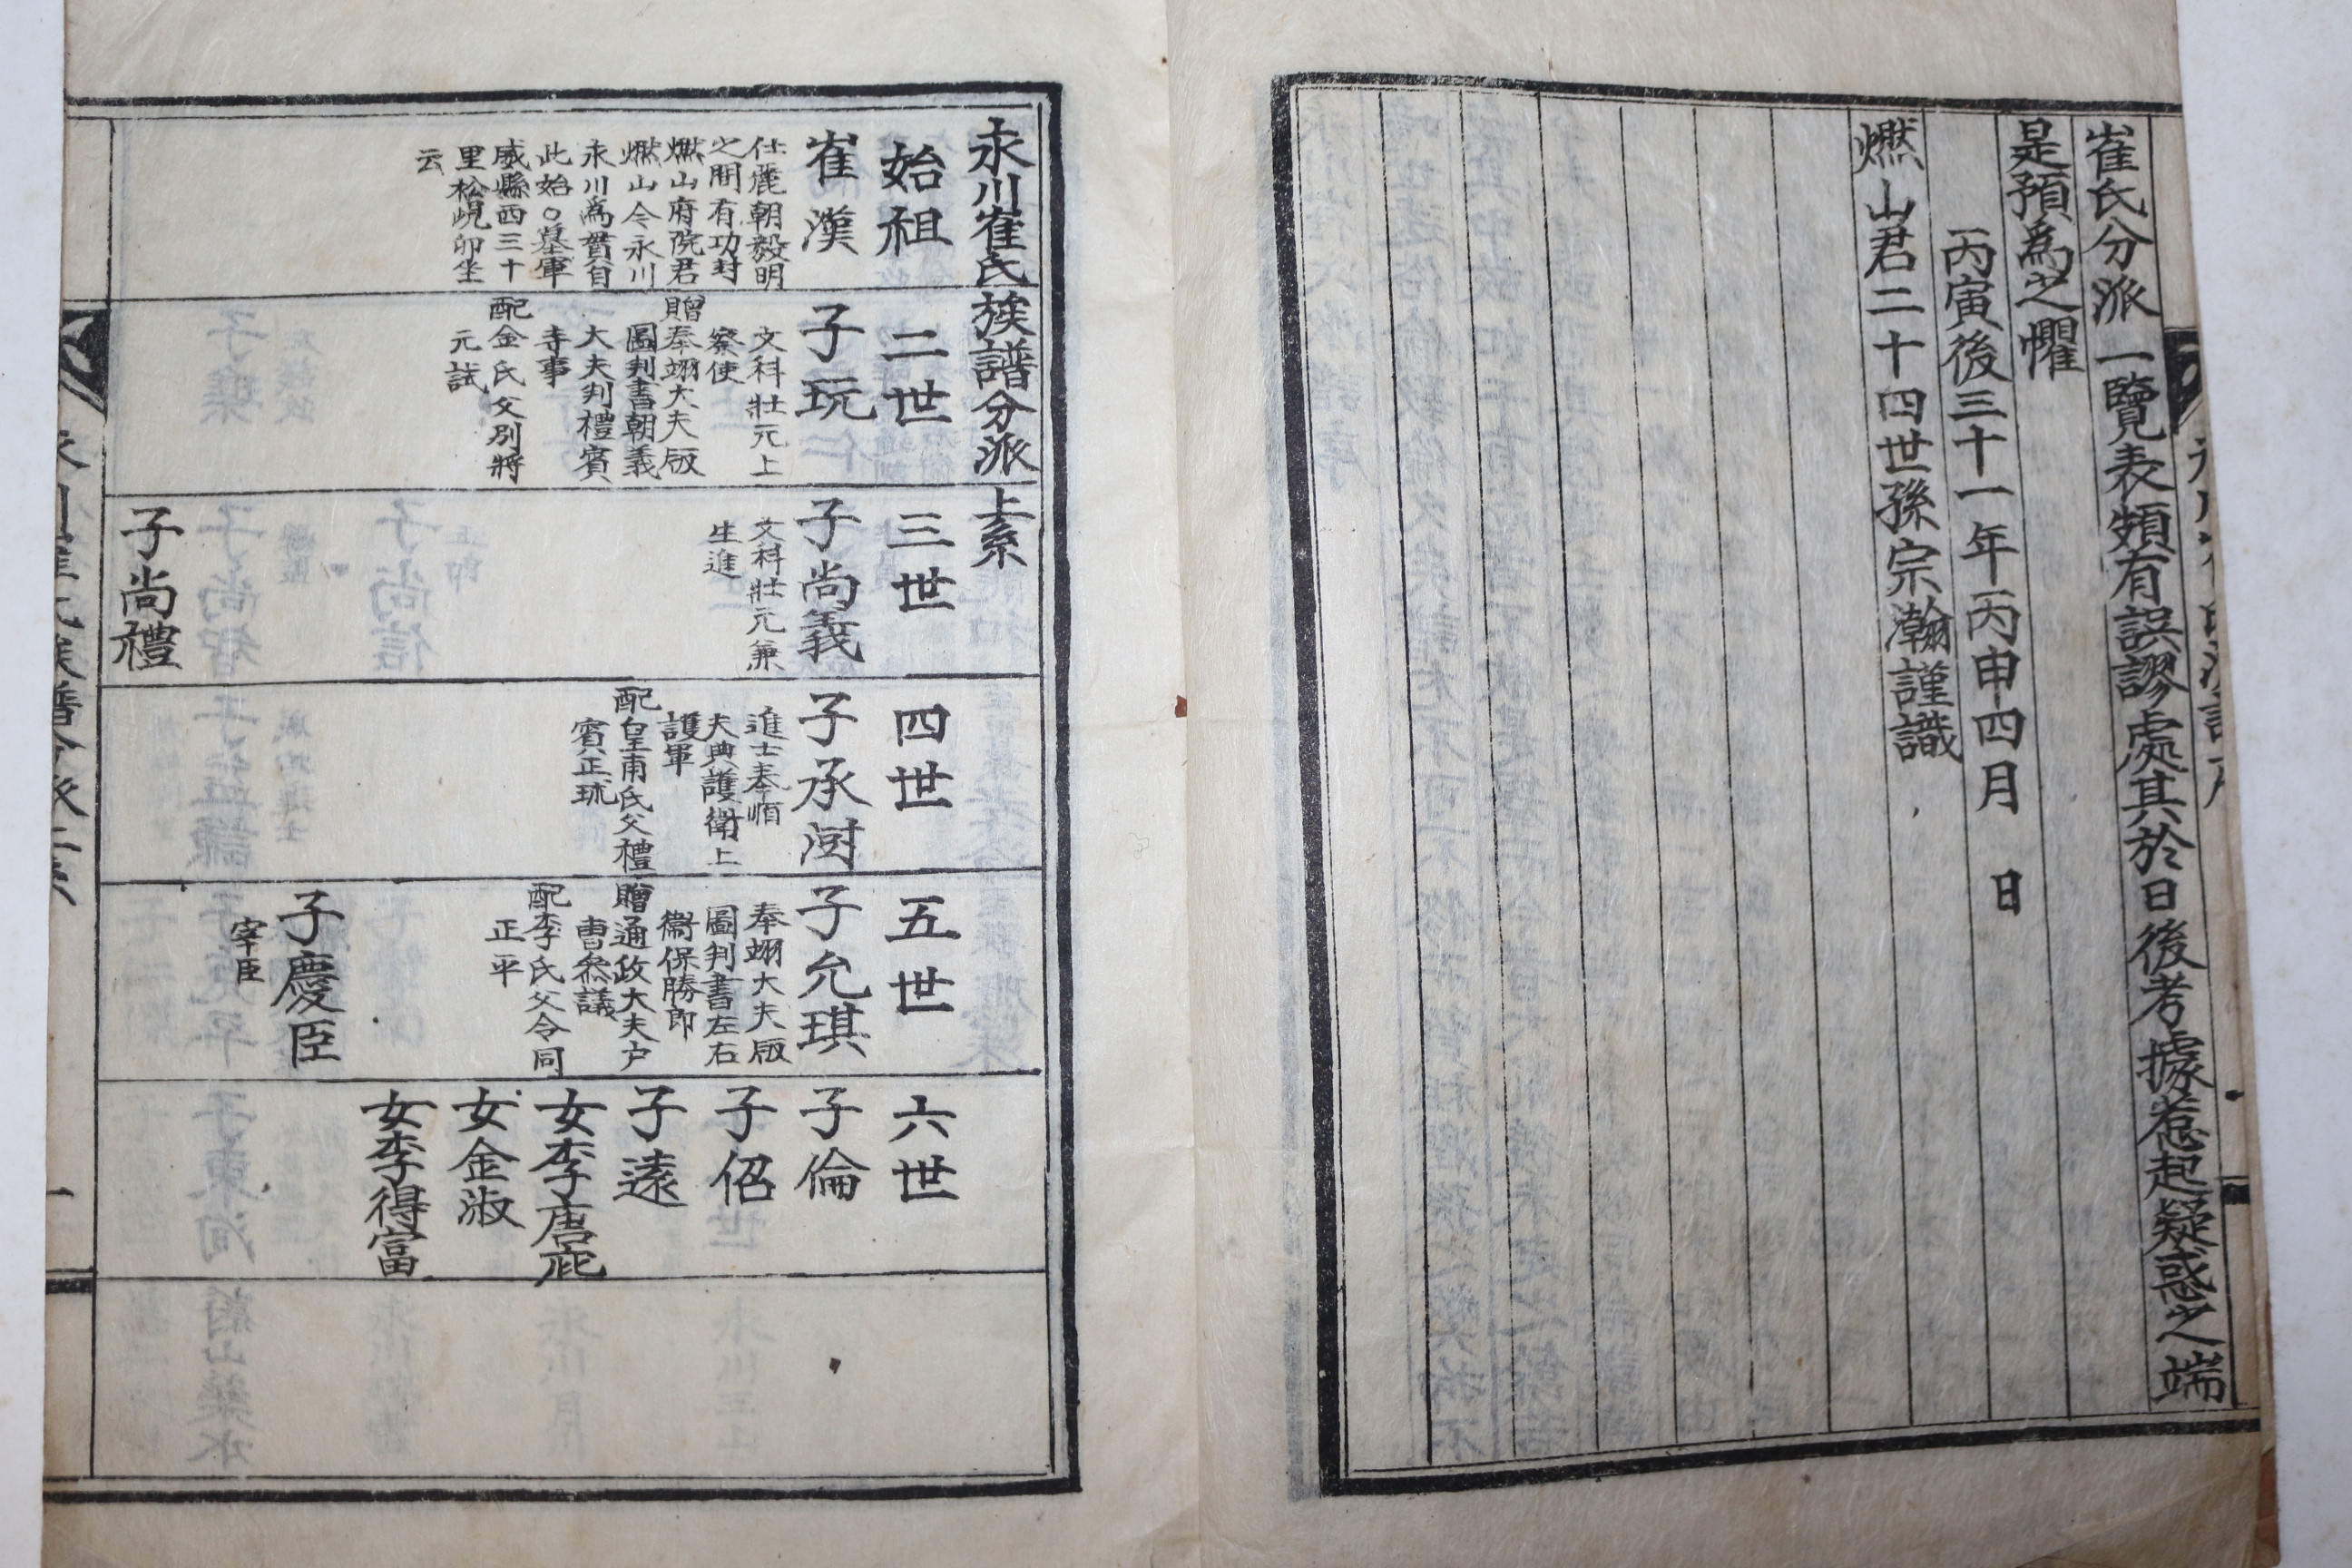 崔氏分派一覽表頗有誤謬處其於日後考據惹起疑惑之端
是預爲之懼
丙寅後三十一年丙申四月 日
燃山君二十四世孫宗瀚謹識
永川崔氏族譜分派上系
始祖
崔漢
仕麗朝毅明
之間有功封
燃山府院君
燃山今永川
永川爲貫自
此始○墓軍
威縣西三十
里松峴卯坐
云
二世
子玩
文科壯元上
察使
贈奉翊大夫版
圖判書朝義
大夫判禮賓
寺事
配金氏父別將
元試
三世
子尚義
文科壯元兼
生進
子尚禮
四世
子承澍
進士奉順
夫典護衛上
護軍
配皇甫氏父禮
賓正珫
五世
子允琪
奉翊大夫版
圖判書左右
衛保勝郎
贈通政大夫户
曺叅議
配李氏父令同
正平
子慶臣
宰臣
六世
子倫
子侶
子遠
女李唐庇
女金淑
女李得富